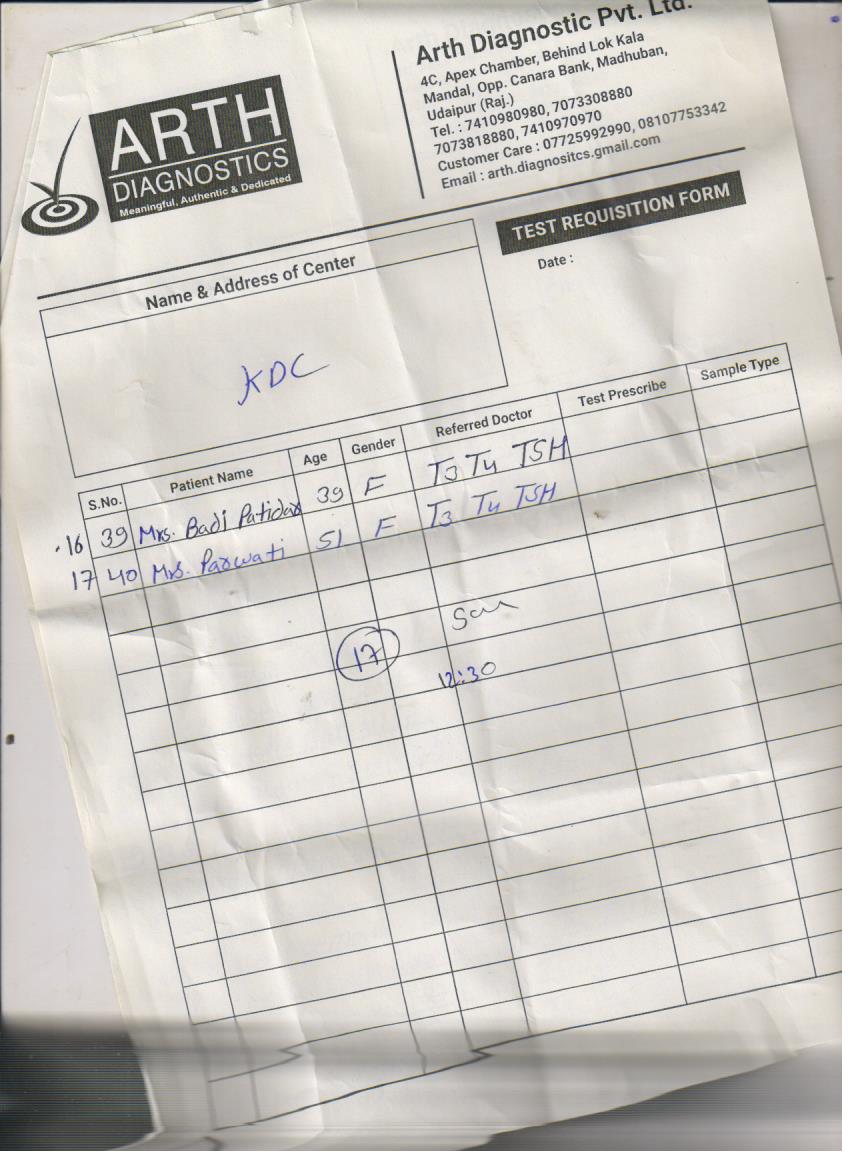 ARTH
DIAGNOSTICS
Meaningful, Authentic & Dedicated
Arth Diagnostic Pvt. Ltd.
4C, Apex Chamber, Behind Lok Kala
Mandal, Opp. Canara Bank, Madhuban,
Udaipur (Raj.)
Tel. : 7410980980, 7073308880
7073818880, 7410970970
Customer Care : 07725992990, 08107753342
Email : arth.diagnositcs.gmail.com
TEST REQUISITION FORM
Date :
Name & Address of Center
KDC
S.No. Patient Name Age Gender Referred Doctor Test Prescribe Sample Type
16 39 Mrs. Badi Patidar 39 F T3 T4 TSH
17 40 Mrs. Parwati 51 F T3 T4 TSH
17
12:30